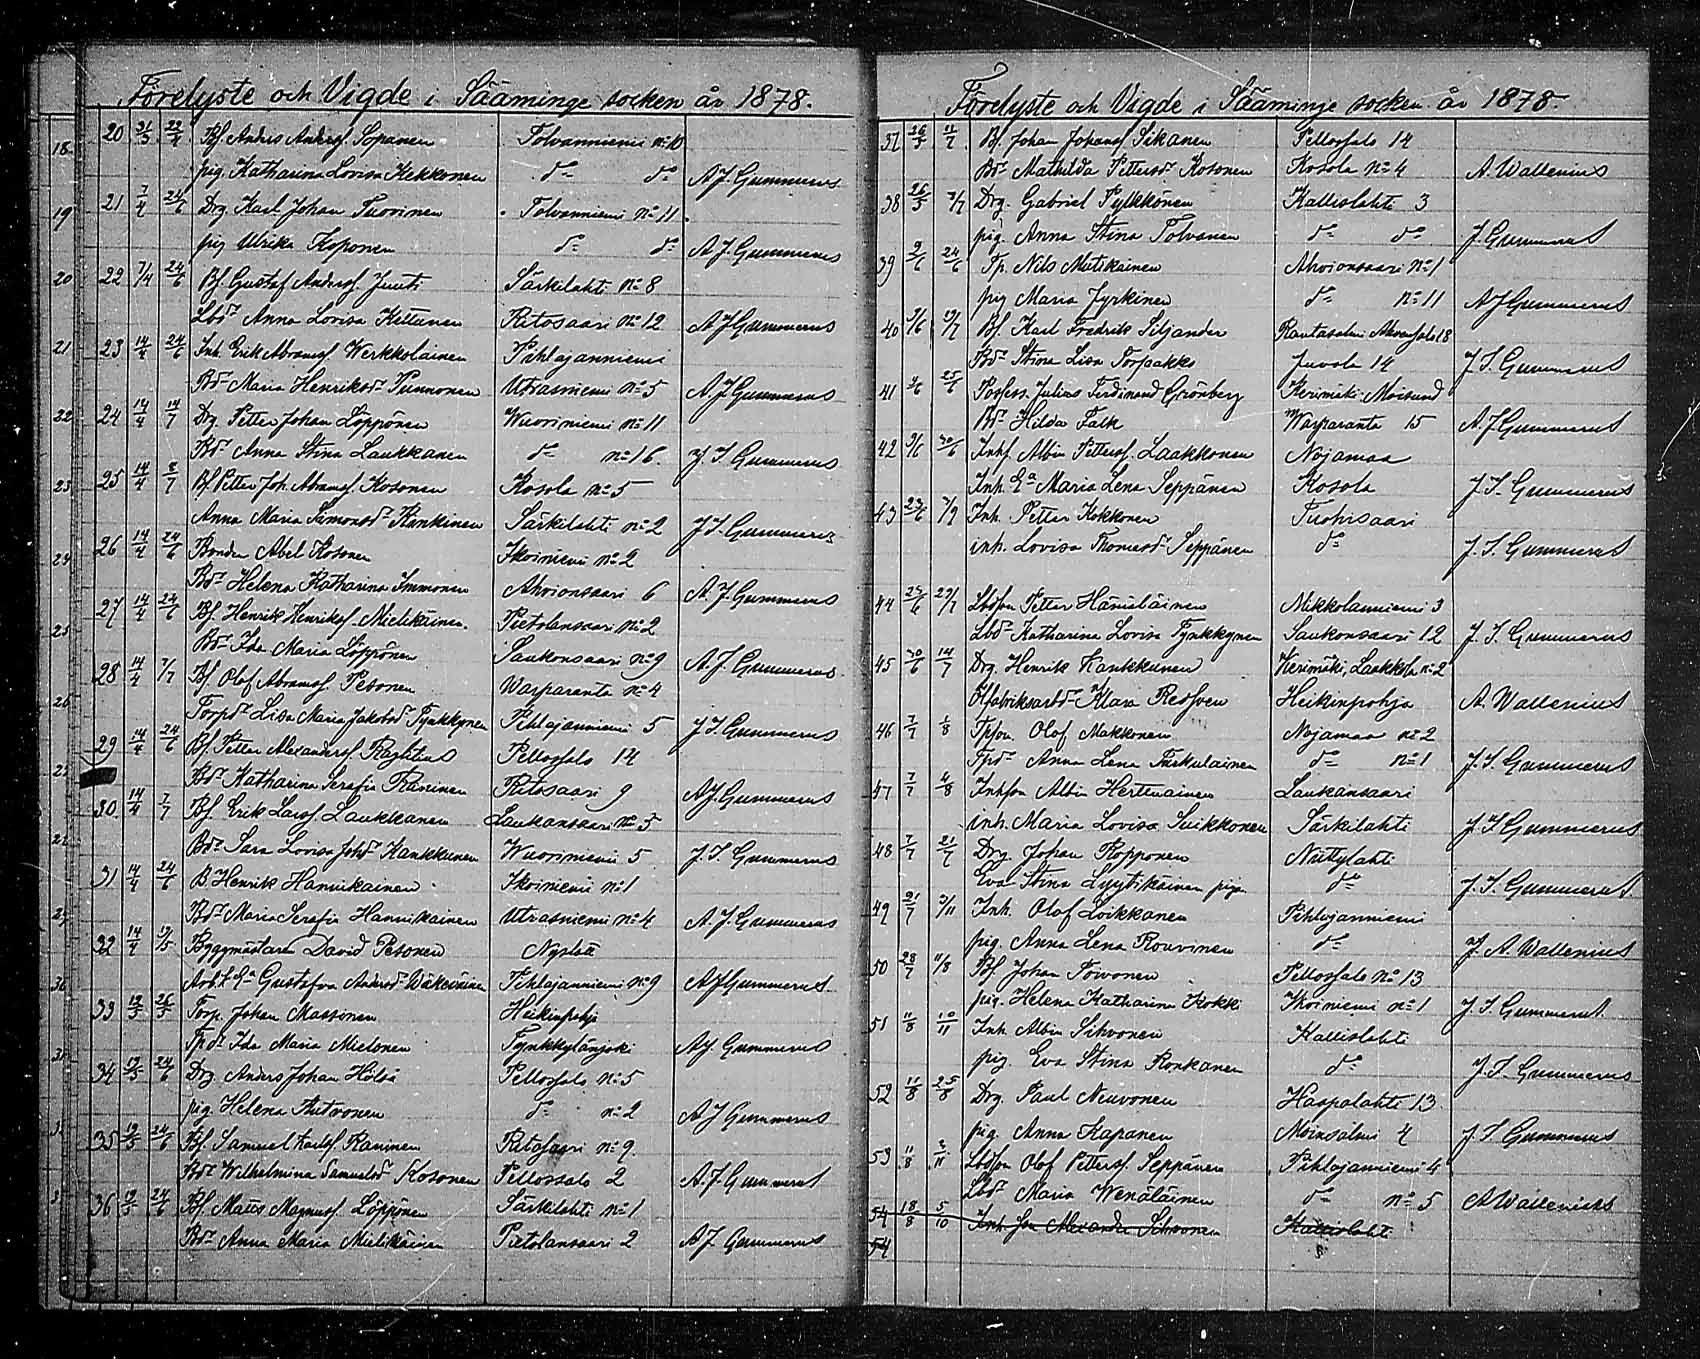 Förelyste och Vigde i Sääminge socken år 1878.
20 31/3 22/4 Bf. Anders Andersf. Sopanen Tolvanniemi No 10
pig. Katharina Lovisa Kekkonen do do A J Gummerus
21 7/4 24/6 Drg. Karl Johan Tuovinen Tolvanniemi No 11
pig Ulrika Koponen do do A J Gummerus
22 7/4 24/6 Bf. Gustaf Andersf. Juuti Särkilahti No 8
Lbdr Anna Lovisa Kettunen Ritosaari No 12 A J Gummerus
23 14/4 24/6 Inh. Erik Abramsf. Werkkolainen Pihlajanniemi
Bdr Maria Henriksdr Punnonen Utrasniemi No 5 A. J Gummerus
24 14/4 14/7 Drg. Petter Johan Löppönen Wuoriniemi No 11
Bdr Anna Stina Laukkanen do No 16. J. I. Gummerus
25 14/4 8/7 Bf Petter Joh. Abramsf. Kosonen Kosola No 5
Anna Maria Simonsdr Kankinen Särkilahti No 2 J I. Gummerus
26 14/4 24/6 Bonden Abel Kosonen Ikoiniemi No 2
Bdr Helena Katharina Immonen Ahvionsaari 6 A. J. Gummerus
27 14/4 24/6 Bf. Henrik Henriksf. Mielikäinen. Pietolansaari No 2
Bdr Ida Maria Löppönen Saukonsaari No 9 A. J. Gummerus
28 14/4 7/7 Bf Olof Abramsf. Pesonen Warparanta No 4
Torpdr Lisa Maria Jakobsdr Tynkkynen Pihlajanniemi 5 J I. Gummerus
29 14/4 24/6 Bf. Petter Alexandersf. Pellossalo 14
Bdr Katharina Serafia Raninen Ritosaari 9 A J Gummerus
30. 14/4 7/7 Bf. Erik Larsf. Laukkanen Laukansaari No 5
Bdr Sara Lovisa Johdr Kankkunen Wuoriniemi 5 J. I. Gummerus
31 14/4 24/6 B. Henrik Hannikainen Ikoiniemi No 1
Bdr Maria Serafia Hannikainen Utrasniemi No 4 A. J. Gummerus
32 14/4 Byggmästaren David Pesonen Nyslott
Gustafva Andersdr Pihlajanniemi No 9 A J Gummerus
33 19/5 26/5 Torp. Johan Massonen Heikinpohja
Tpdr Ida Maria Mielonen Tynkkylänjoki A J Gummerus
34 19/5 24/6 Drg. Anders Johan Hölsä Pellossalo No 5
pig Helena Auvonen do No 2 A J Gummerus
35 19/5 24/6 Bf. Samuel Karlsf. Raninen Ritosaari No 9.
Bdr Wilhelmina Samuelsdr Kosonen Pellossalo 2 A. J. Gummerus
36 19/5 24/6 Bf. Matts Magnusf. Löppönen Särkilahti No 1
Bdr Anna Maria Mielikäinen Pietolansaari 2 A J Gummerus
Förelyste och Vigde i Sääminge socken år 1878.
37 26/5 11/7 Bf. Johan Johansf Sikanen Pellossalo 14
Bdr Mathilda Pettersdr Kosonen Kosola No 4 A. Wallenius
38 26/5 7/7 Drg. Gabriel Pylkkönen Kallislahti 3
pig. Anna Stina Tolvanen do do J. Gummerus
39 9/6 24/6 Tp. Nils Mutikainen Ahvionsaari No 1
pig Maria Jyrkinen do No 11 A J Gummerus
40 9/6 Bf. Karl Fredrik Siljander Rantasalmi 18
Bdr Stina Lisa Torpakko Juvola 14 J. I. Gummerus
41 9/6 25/6 Possess. Julius Ferdinand Grönberg Kerimäki Moisund
Bdr Hilda Falk Warparanta 15 A. J Gummerus
42 9/6 30/6 Inhf. Albin Pettersf. Laakkonen Nojamaa
Inh. Ea Maria Lena Seppänen Kosola J I. Gummerus
43 23/6 7/7 Inh. Petter Kokkonen Tuohisaari
inh. Lovisa Thomasdr Seppänen do J. I. Gummerus
44 Lbdson Petter Hämäläinen Mikkolanniemi 3
Lbdr Katharina Lovisa Tynkkynen Saukonsaari 12 J. I. Gummerus
45 30/6 14/7 Drg. Henrik Kankkunen Kerimäki, Laakkola No 2
Klara Redsven Heikinpohja A. Wallenius
46 7/7 1/8 Tpson. Olof Makkonen Nojamaa No 2
Tpdr Anna Lena Turkulainen do No 1 J. I. Gummerus
47 7/7 4/8 Inhson Albin Herttuainen Laukansaari
inh. Maria Lovisa Suikkonen Särkilahti J I Gummerus
48 7/7 21/7 Drg. Johan Kopponen Niittylahti
Eva Stina Lyytikäinen pign do J. I. Gummerus
49 21/7 Inh. Olof Loikkanen Pihlajanniemi
pig. Anna Lena Rouvinen do J. A. Wallenius
50 28/7 11/8 Bf. Johan Toivonen Pellossalo No 13
pig. Helena Katharina Kokki Ikoiniemi No 1 J. I. Gummerus
51 11/8 10/11 Inh Albin Sihvonen Kallislahti
pig. Eva Stina Ronkanen do J. I. Gummerus
52 11/8 25/8 Drg. Paul Neuvonen Haapalahti 13
pig. Anna Kapanen Moinsalmi 4 J I Gummerus
53 11/8 Lbdson Olof Pettersf. Seppänen Pihlajanniemi 4
Lbdr Maria Wenäläinen do No 5 A Wallenius
54 18/8 5/10 Inh. Son Alexander Sihvonen Kallislahti
54